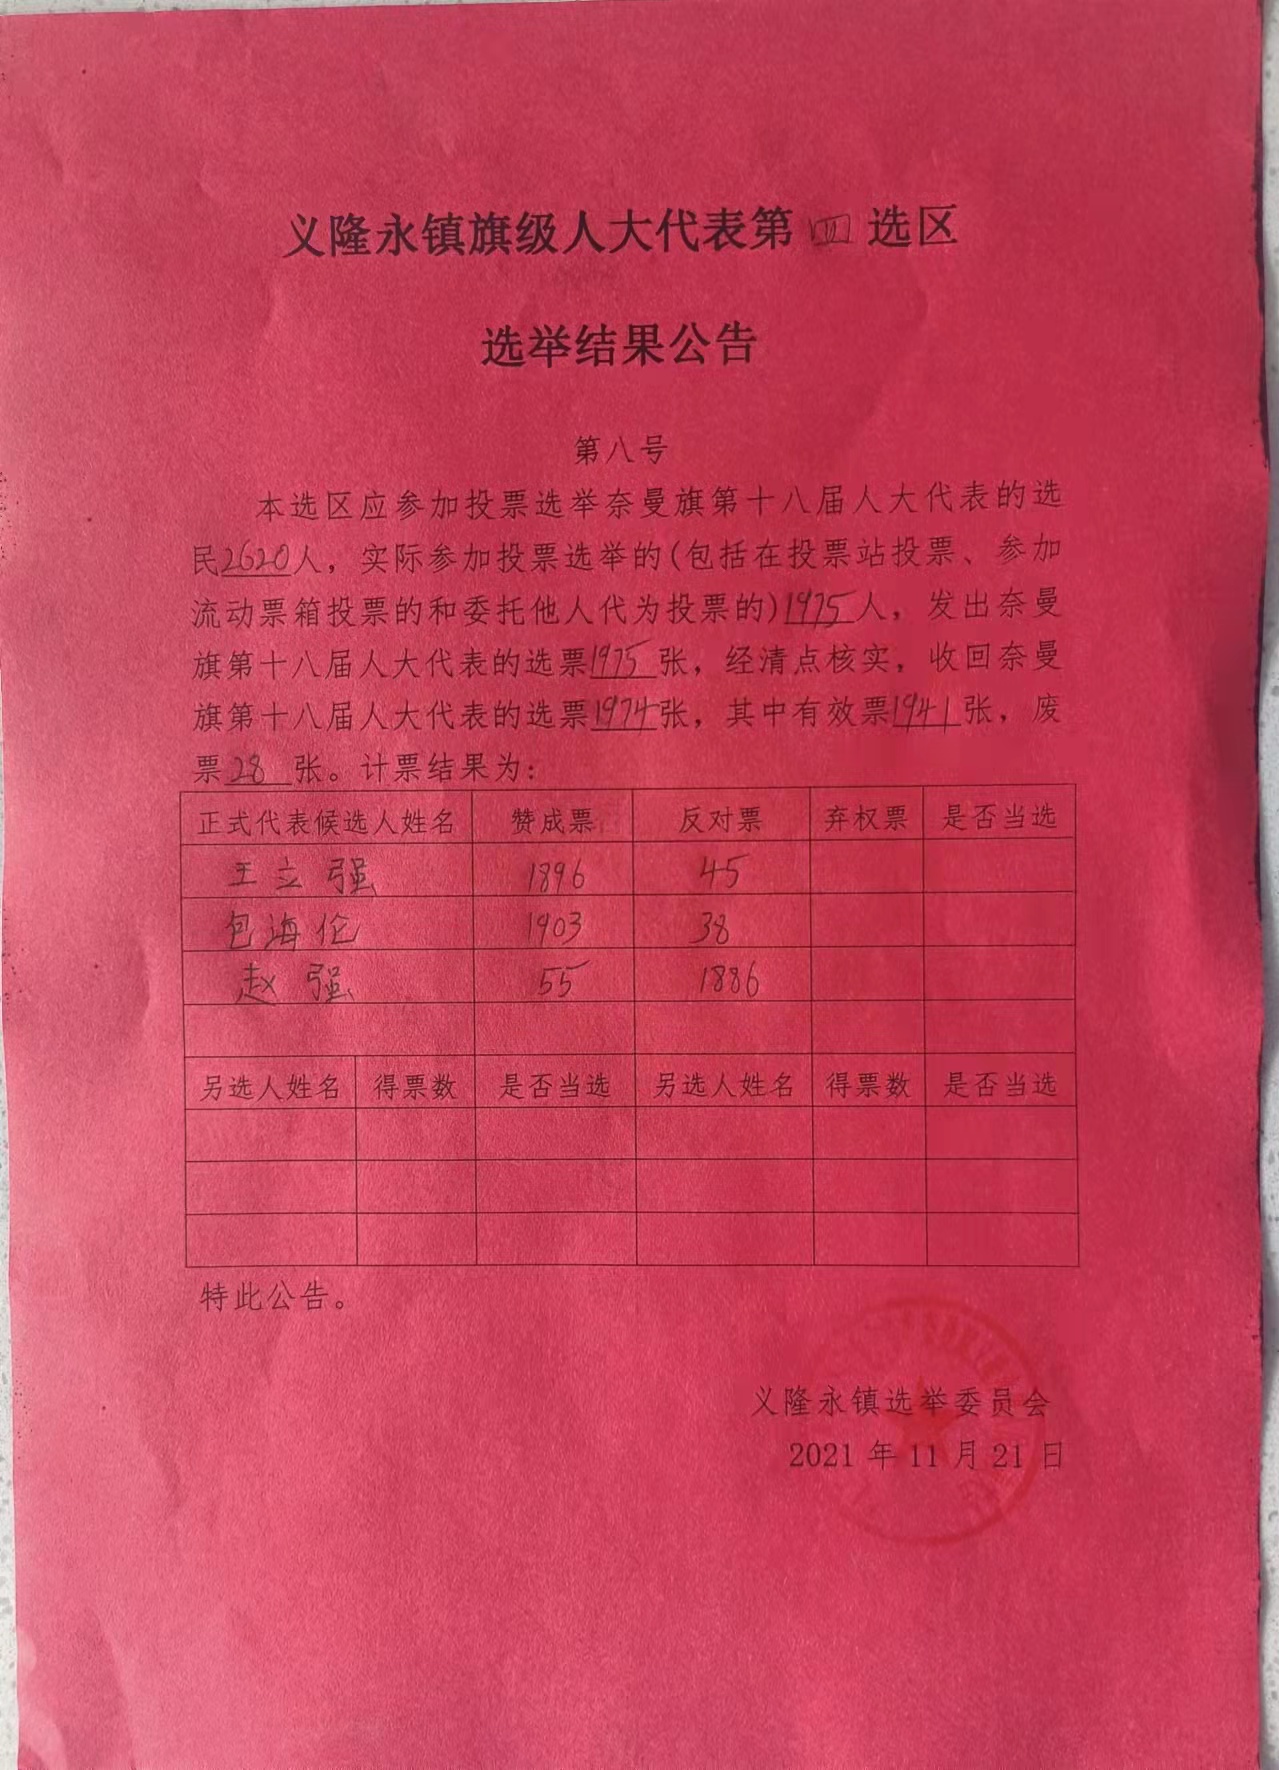 义隆永镇旗级人大代表第四选区
选举结果公告
第八号
本选区应参加投票选举奈曼旗第十八届人大代表的选
民2620人，实际参加投票选举的(包括在投票站投票、参加
流动票箱投票的和委托他人代为投票的)1975人，发出奈曼
旗第十八届人大代表的选票1975张，经清点核实，收回奈曼
旗第十八届人大代表的选票1974张，其中有效票1941张，废
票28张。计票结果为：
正式代表候选人姓名 赞成票 反对票 弃权票 是否当选
王立强 1896 45
包海伦 1903 38
赵强 55 1886
另选人姓名 得票数 是否当选 另选人姓名 得票数 是否当选
特此公告。
义隆永镇选举委员会
2021年11月21日